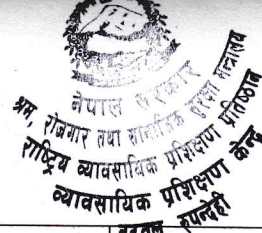 नेपाल सरकार
श्रम, रोजगार तथा सामाजिक सुरक्षा मन्त्रालय
राष्ट्रिय व्यावसायिक प्रशिक्षण प्रतिष्ठान
व्यावसायिक प्रशिक्षण केन्द्र
बुटवल रुपन्देही